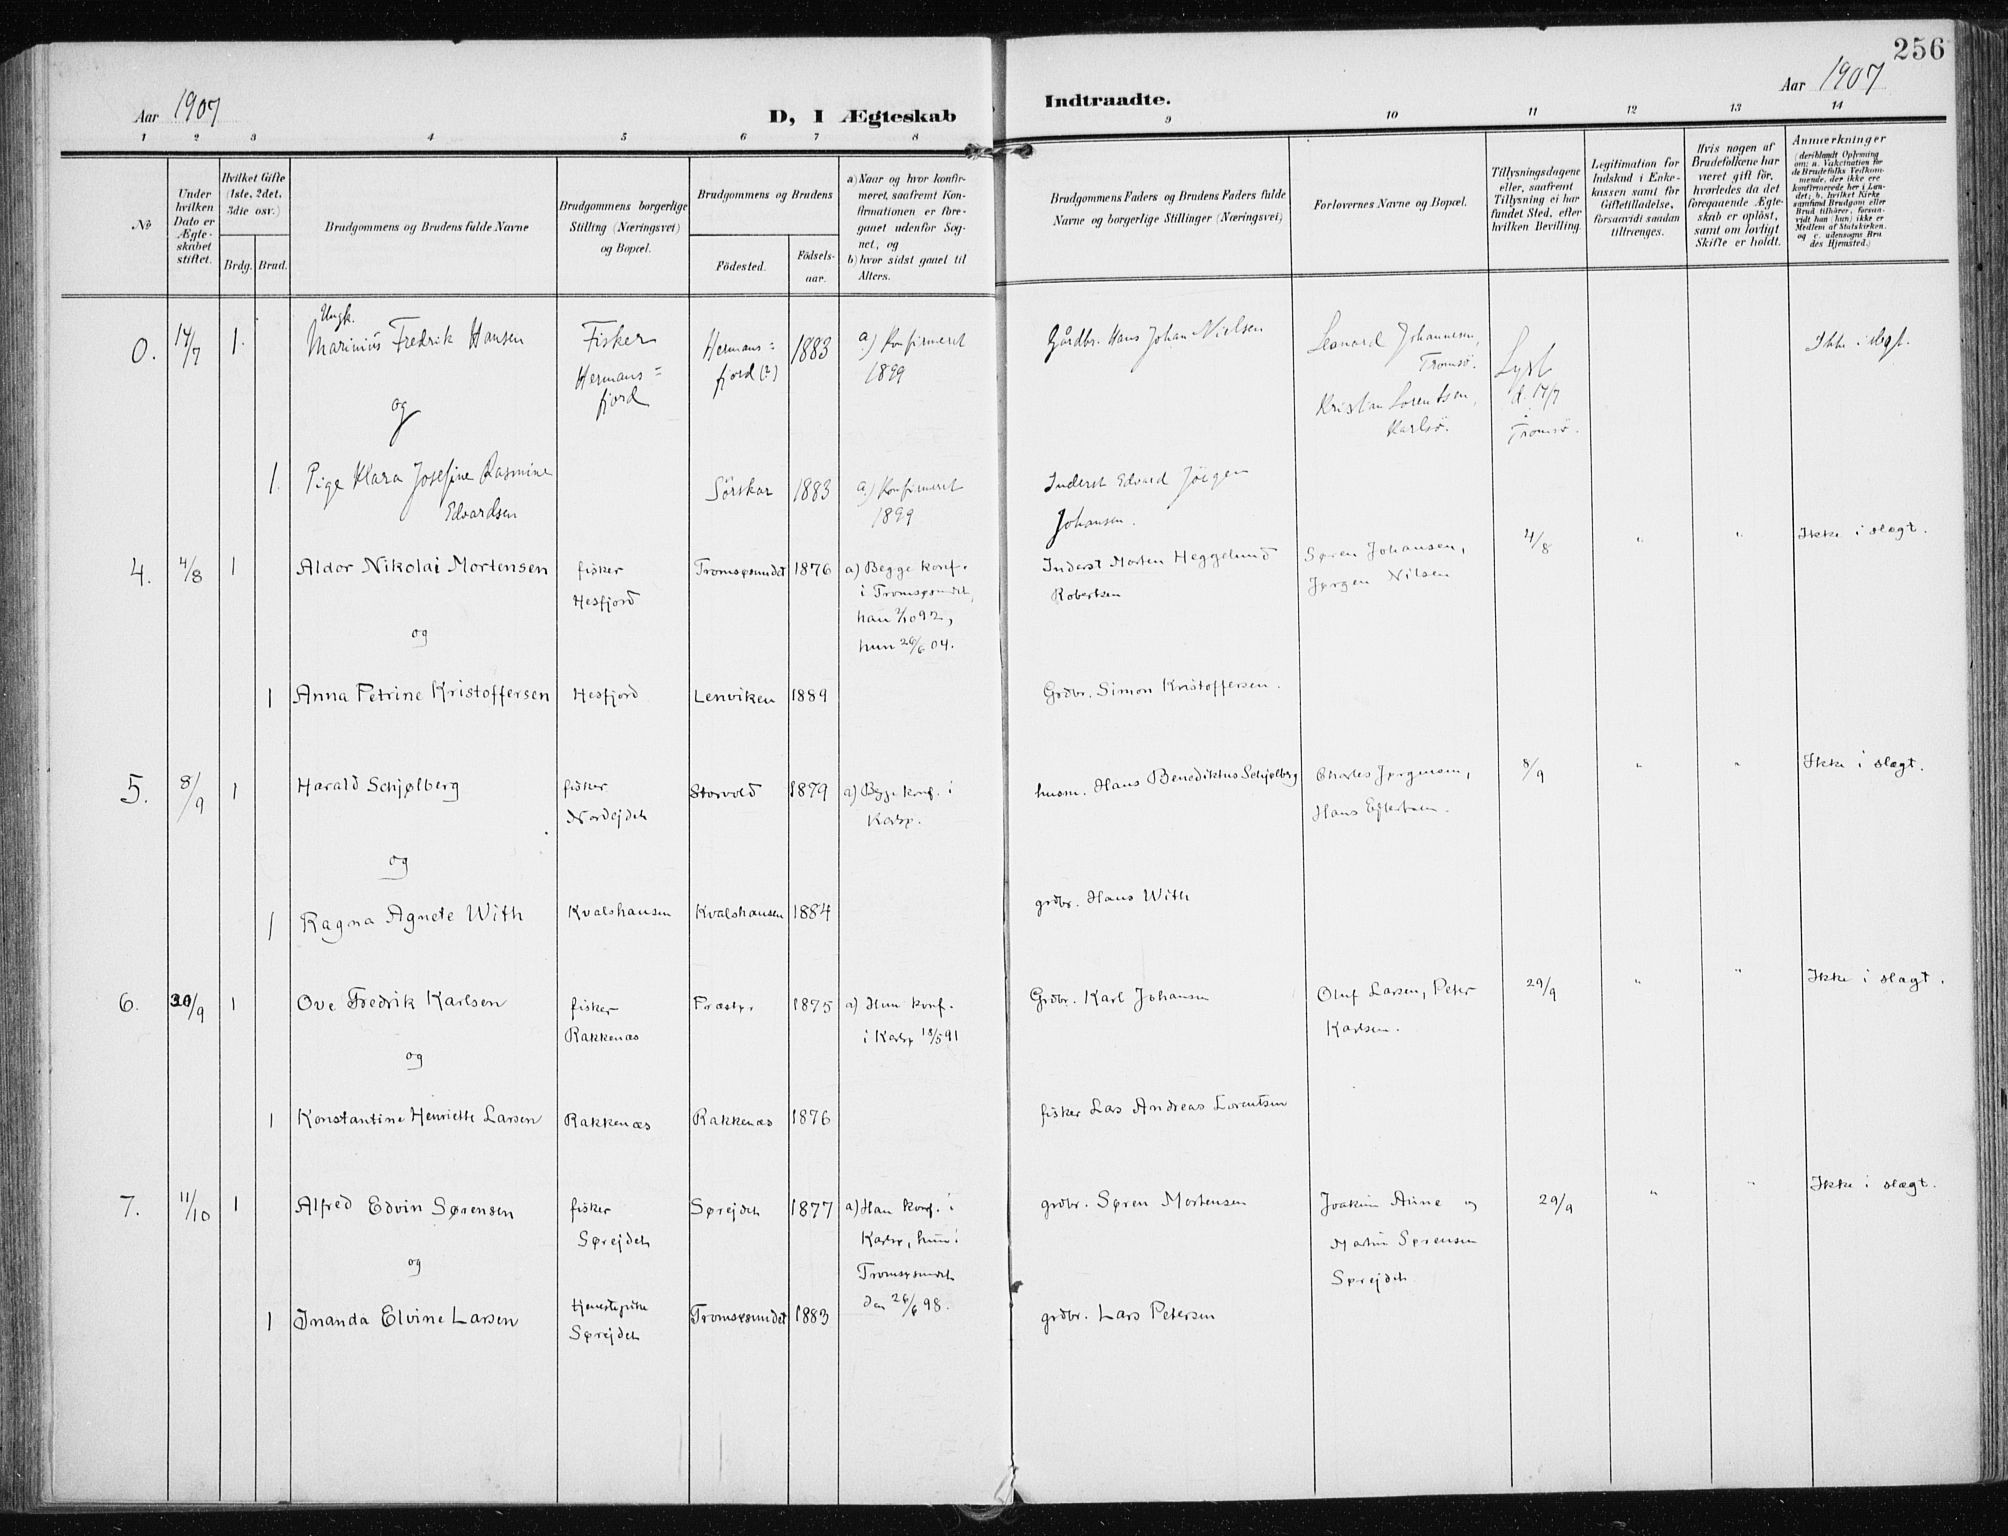 256
Aar 1907
D, I Ægteskab
Indtraadte.
Aar 1907
1 2 3 4 5 6 7 8 9 10 11 12 13 14
No
Under hvilken Dato er Ægteskabet stiftet.
Hvilket Gifte (1ste, 2det, 3die osv.)
Brdg. Brud.
Brudgommens og Brudens fulde Navne
Brudgommens borgerlige Stilling (Næringsvei) og Bopæl.
Brudgommens og Brudens
Födested.
Födsels-aar.
a) Naar og hvor konfirmeret, saafremt Konfirmationen er foregaaet udenfor Sognet, og
b) hvor sidst gaaet til Alters.
Brudgommens Faders og Brudens Faders fulde Navne og borgerlige Stillinger (Næringsvei)
Forlovernes Navne og Bopæl.
Tillysningsdagene eller, saafremt Tillysning ei har fundet Sted, efter hvilken Bevilling.
Legitimation for Indskud i Enkekassen samt for Giftetilladelse, forsaavidt saadan tiltrænges.
Hvis nogen af Brudefolkene har været gift för, hvorledes da det foregaaende Ægteskab er oplöst, samt om lovligt Skifte er holdt.
Anmærkninger
(deriblandt Oplysning om: a. Vakcination for de Brudefolks Vedkommende, der ikke ere konfirmerede her i Landet; b. hvilket Kirkesamfund Brudgom eller Brud tilhörer, forsaavidt han (hun) ikke er Medlem af Statskirken. og c. udensogns Brudes Hjemsted.)
0. 14/7 1. Ungk.
Marinius Fredrik Hansen
Fisker
Hermans=
fjord
Hermans=
fjord (?)
1883
a) Konfirmeret
1899
Gårdbr. Hans Johan Nielsen
Leonard Johannesen,
Tromsö.
Kristian Lorentsen,
Karlsö.
Lyst
d. 14/7
i
Tromsö.
Ikke i slegt.
og
1. Pige Klara Josefine Rasmine
Edvardsen
Sörskar 1883
a.) Konfirmeret
1899
Inderst Edvard Jörgen
Johansen.
4. 4/8 1 Aldor Nikolai Mortensen
fisker
Hesfjord
Tromsøsundet 1876
a) Begge konf.
i Tromsøsundet,
han 2/10 92,
hun 26/6 04.
Inderst Morten Heggelund
Robertsen
Søren Johansen,
Jørgen Nilsen
4/8 " " Ikke i slægt.
og
1 Anna Petrine Kristoffersen Hesfjord Lenviken 1889
Grdbr. Simon Kristoffersen.
5. 8/9 1 Harald Schjølberg
fisker
Nordejdet
Storvold 1879
a) Begge konf. i
Karlsø.
husm. Hans Benediktus Schjølberg
Charles Jørgensen,
Hans
8/9 " " Ikke i slægt.
og
1 Ragna Agnete With Kvalshausen Kvalshausen 1884
grdbr. Hans With
6. 30/9 1 Ove Fredrik Karlsen
fisker
Rakkenæs
1875
a) Hun konf.
i Karlsø 18/5 91
Grdbr. Karl Johansen
Oluf Larsen, Peter
Karlsen.
29/9 " " Ikke i slægt.
og
1 Konstantine Henriette Larsen Rakkenæs Rakkenæs 1876
fisker Lars Andreas Lorentsen
7. 11/10 1 Alfred Edvin Sørensen
fisker
Sørejdet
Sørejdet 1877
a) Han konf. i
Karlsø, hun i
Tromsøsundet
den 26/6 98.
grdbr. Søren Mortensen
Joakim Aune og
Martin Sørensen
Sørejdet
29/9 " " Ikke i slægt.
og
1 Inanda Elvine Larsen
tjenestepike
Sørejdet
Tromsøsundet 1883
grdbr. Lars Petersen